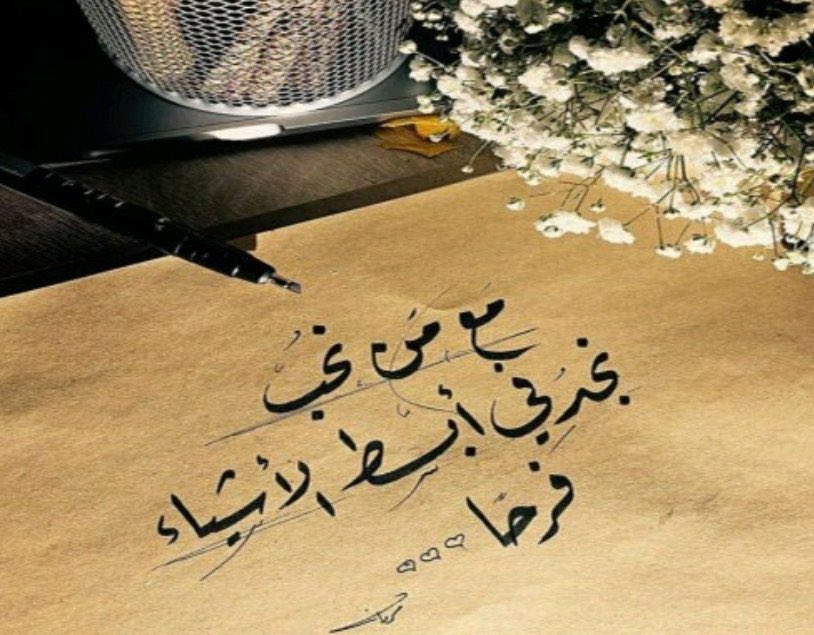 مَع مَن نُحبُّ
نجدُ في أبسط الأشياء
فرحًا